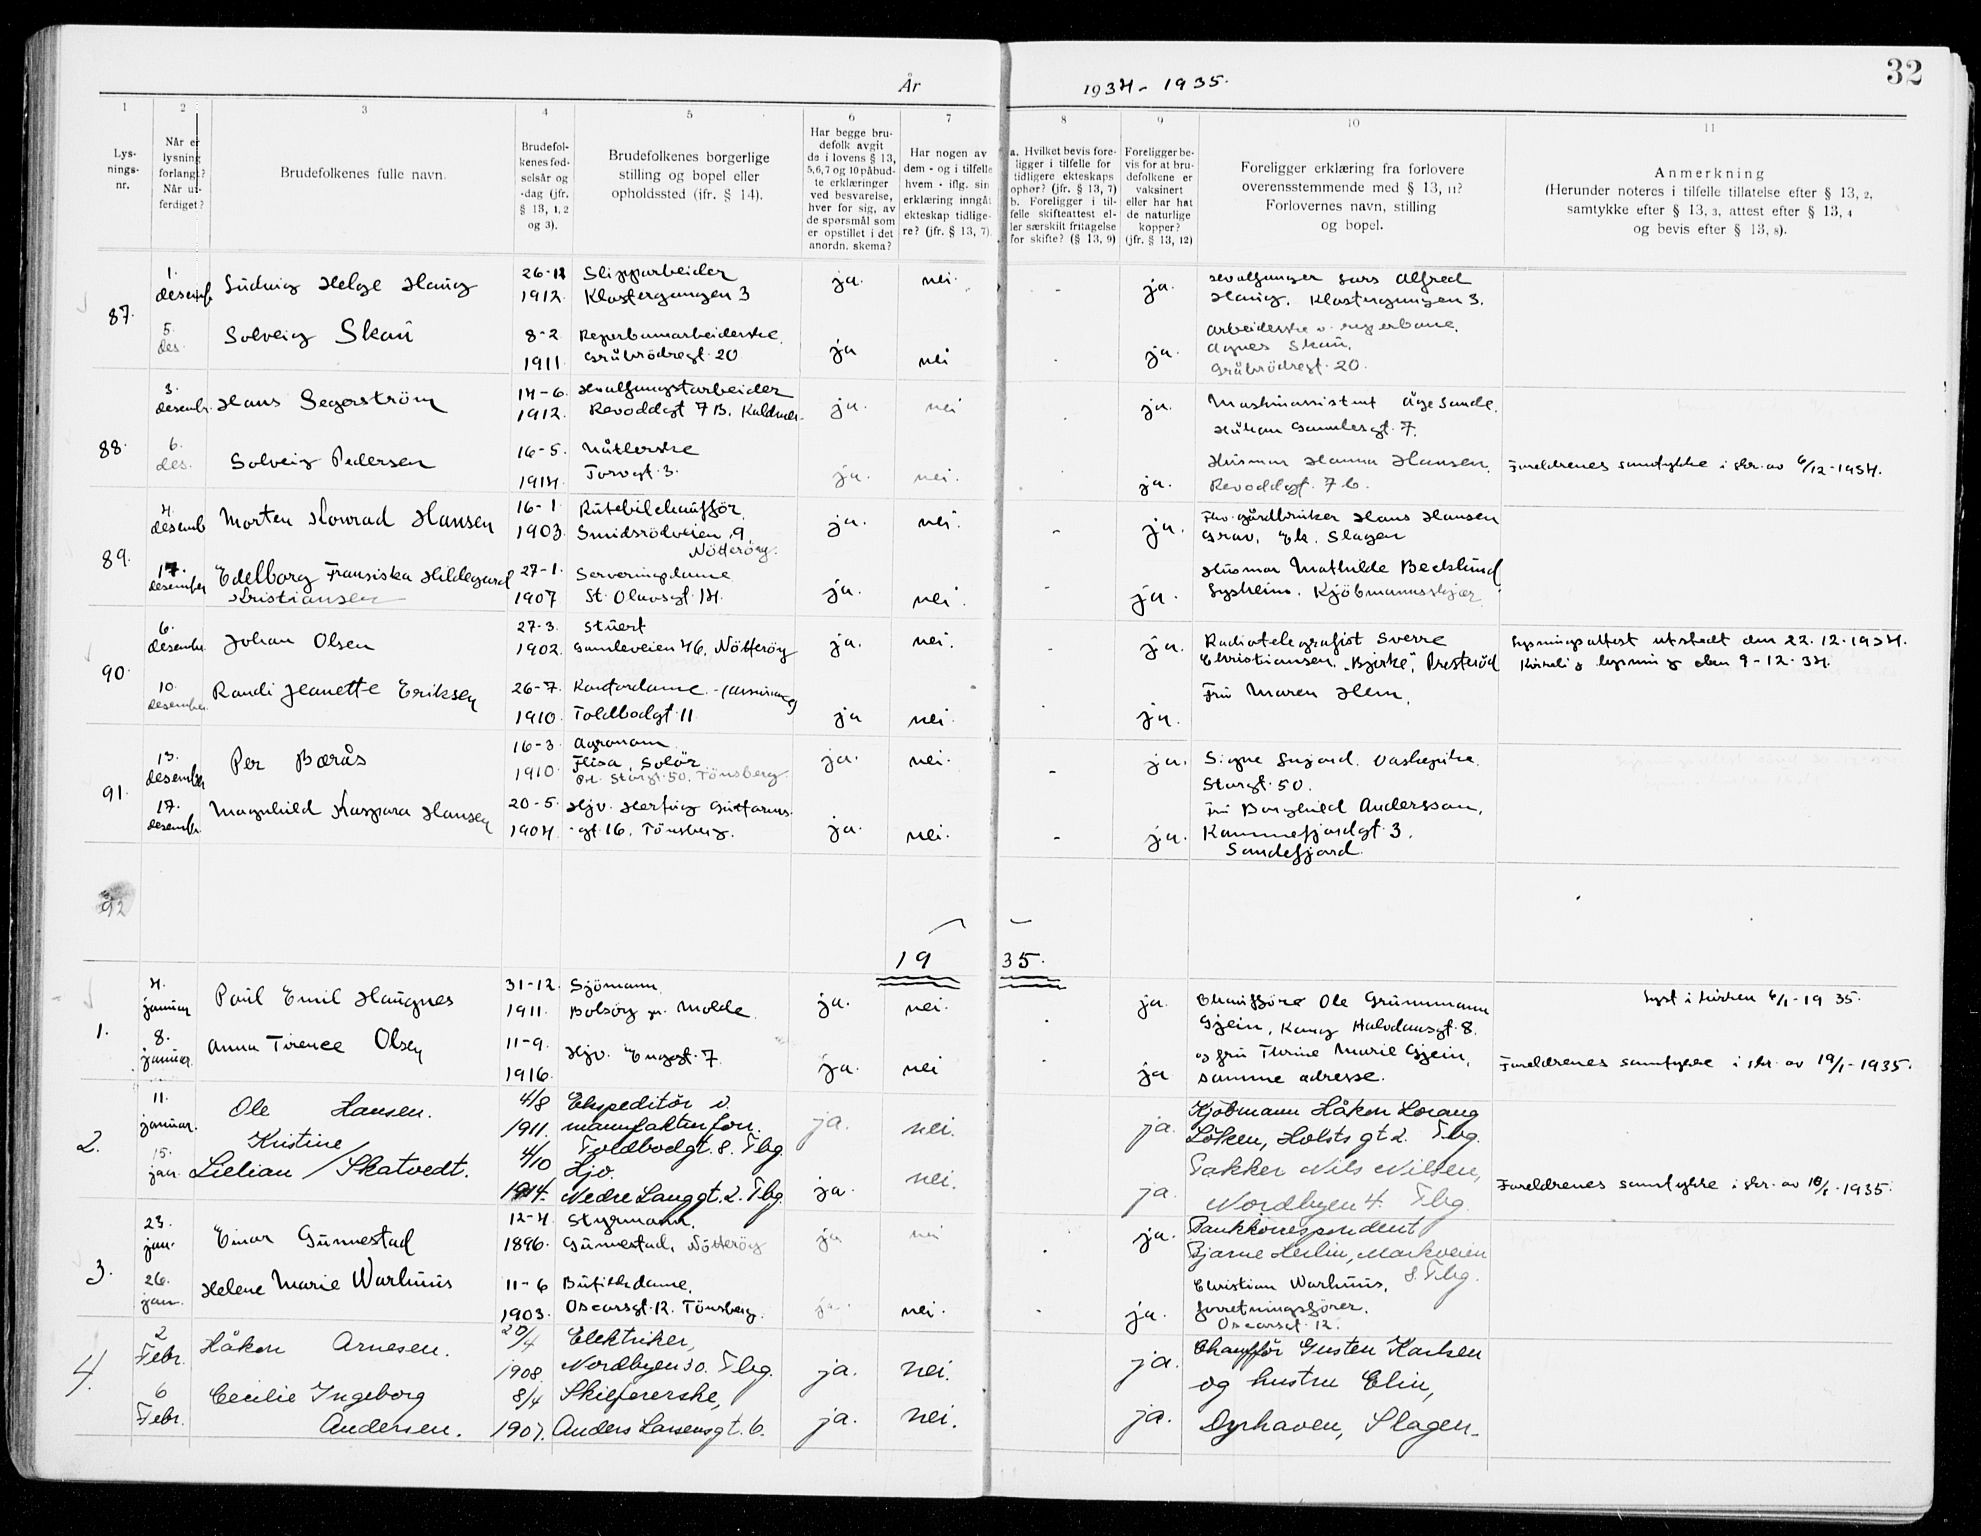 32
År 1934 - 1935.
1 2 3 4 5 6 7 8 9 10 11
Lys-
nings-
nr.
Når er
lysning
forlangt?
Når ut-
ferdiget?
Brudefolkenes fulle navn.
Brudefol-
kenes fød-
selsår og
-dag (jfr.
§ 13, 1, 2
og 3).
Brudefolkenes borgerlige
stilling og bopel eller
opholdssted (jfr. § 14).
Har begge bru-
defolk avgit
de i lovens § 13,
5,6,7 og 10 påbud-
te erklæringer
ved besvarelse,
hver for sig, av
de spørsmål som
er opstillet i det
anordn. skema?
Har nogen av
dem - og i tilfelle
hvem - iflg. sin
erklæring inngåt
ekteskap tidlige-
re? (jfr. § 13, 7).
a. Hvilket bevis fore-
ligger i tilfelle for
tidligere ekteskaps
ophør? (jfr. § 13, 7)
b. Foreligger i til-
felle skifteattest el-
ler særskilt fritagelse
for skifte? (§ 13, 9)
Foreligger be-
vis for at bru-
defolkene er
vaksinert
eller har hat
de naturlige
kopper?
(jfr. § 13, 12)
Foreligger erklæring fra forlovere
overensstemmende med § 13, 11?
Forlovernes navn, stilling
og bopel.
Anmerkning
(Herunder noteres i tilfelle tillatelse efter § 13, 2,
samtykke efter § 13, 3, attest efter § 13, 4
og bevis efter § 13, 8).
87.
1.
desemb
Ludvig Helge Haug
26-12
1912.
Slipparbeider
Klostergangen 3
ja. nei. - ja.
Hvalfanger Lars Alfred
Haug, Klostergangen 3.
5.
des.
Solveig Skau
8-2
1911
Reperbanearbeiderske.
Gråbrödregt. 20
ja nei - ja.
Arbeiderske v. reperbane.
Agnes Skau,
Gråbrödregt. 20.
88.
3.
desembr.
Hans Segerström
14-6.
1912.
Hvalfangstarbeider
Revoddgt 7 B. Kaldnes
ja. nei - ja.
Maskinassistent Åge Sande.
Håkon Gamlesgt. 7.
6.
des.
Solveig Pedersen
16-5.
1914.
Nåtlerske
Torvgt. 3.
ja. nei. ja.
Husmor Hanna Hansen.
Revoddgt. 7 b.
Foreldrenes samtykke i skr. av 6/12-1934.
89.
4.
desemb
Morten Konrad Hansen
16-1
1903.
Rutebilchaufför.
Smidsrödveien 9.
Nötteröy.
ja. nei. - ja.
Fhv. gårdbruker Hans Hansen
Grav, Ek. Slagen
17.
desember
Edelborg Fransiska Hildegard
Kristiansen
27-1.
1907
Serveringsdame
St. Olavsgt. 14.
ja. nei. - ja.
Husmor Mathilde Becklund
Lysheim. Kjöbmannsskjær
90.
6.
desembr.
Johan Olsen
27-3.
1902.
Stuert
Gamleveien 46. Nötteröy
ja. nei. - ja.
Radiotelegrafist Sverre
Christiansen, "Bjerke", Presteröd
Lysningsattest utstedt den 22.12.1934.
Kirkelig lysning den 9-12-34.
10.
desember
Randi Jeanette Eriksen
26-7.
1910.
Kontordame
Toldbodgt. 11
ja nei. - ja.
Fru Maren Hem,
91.
13.
desember
Per Bærås
16-3.
1910.
Agronom
Flisa, Solör
Storgt. 50, Tönsberg.
ja. nei. - ja.
Signe Storgt. 50.
17.
desembr.
Magnhild Kaspara Hansen
20-5.
1904.
Hjv. Hertug Guttorms-
gt. 16. Tönsberg.
ja. nei. - ja.
Fru Borghild Andersson,
Kammefjordgt. 3.
Sandefjord.
92
1935.
1.
4.
januar
Paul Emil Haugnes
31-12.
1911.
Sjömann.
Bolsöy pr. Molde.
ja. nei. - ja.
Chauffører Ole Grummann
Gjein, Kong Halvdansgt. 8.
Lyst i kirken 6/1-1935.
8.
januar.
Anna Tirence Olsen
11-9.
1916.
Hjv. Enggt. 7.
ja. nei - ja
og fru Thrine Marie Gjein,
samme adresse.
Foreldrenes samtykke i skr. av 19/1-1935.
2.
11.
januar.
Ole Hansen.
4/8
1911.
Ekspeditör v.
manufakturforr.
Toldbodgt. 8. Tbg.
ja. nei. ja.
Kjöbmann Håkon Lorang
Löken, Holsts gt 2. Tbg.
15.
jan.
Kristine
Lielian / Skatvedt.
4/10
1914.
Hjv.
Nedre Langgt. 2. Tbg.
ja. nei. ja.
Pakker Nils Nilsen,
Nordbyen 4. Tbg.
Foreldrenes samtykke i skr. av 10/1-1935.
3.
23.
jan.
Einar Gunnestad
12-4
1896.
Styrmann.
Gunnestad, Nötteröy
ja nei - ja.
Bankkorrespondent
Bjarne Herlin, Markveien
8. Tbg.
26.
jan.
Helene Marie Warhuus
11-6
1903.
Buffetdame.
Oscarsgt. 12. Tönsberg.
ja. nei. - ja.
Christian Warhuus,
forretningsförer.
Oscarsgt. 12.
4.
2
Febr.
Håkon Arnesen.
20/4
1908.
Elektriker,
Nordbyen 30. Tbg.
ja. nei. ja.
Chaufför Gusten Karlsen
og hustru Elin,
6
Febr.
Cecilie Ingeborg
Andersen.
8/4
1907.
Skiefererske,
Anders Larsensgt. 6.
ja. nei. ja.
Dyrhaven, Slagen.